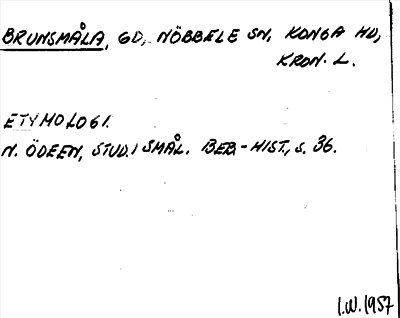 BRUNSMÅLA, GD, NÖBBELE SN, KONGA HD,
KRON. L.
ETYMOLOGI.
N. ÖDEEN, STUD. I SMÅL. BEB.-HIST., S. 36.
I.W. 1957